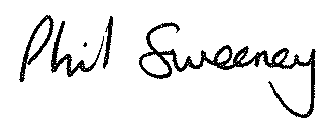 Phil Sweeney